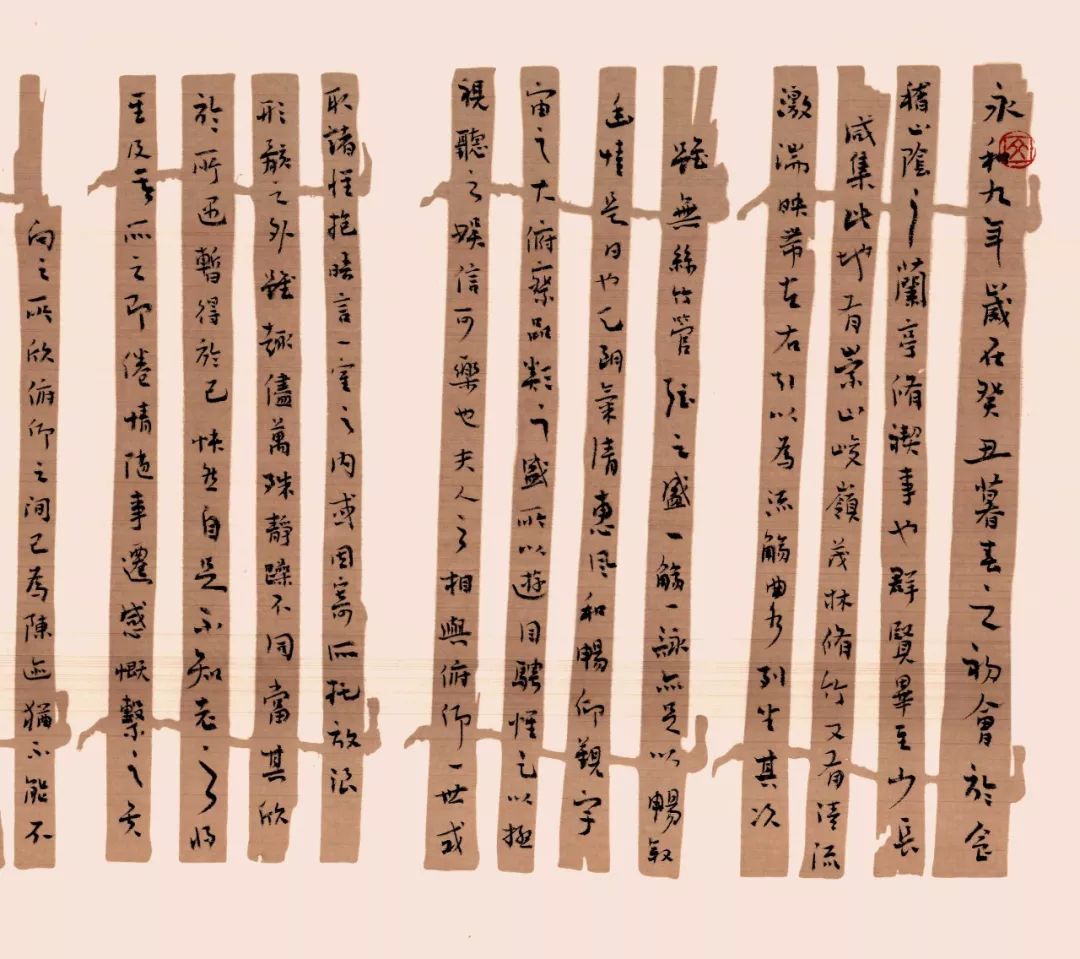 永和九年歲在癸丑暮春之初會於會
稽山陰之蘭亭脩禊事也群賢畢至少長
咸集此地有崇山峻嶺茂林脩竹又有清流
激湍映帶左右引以為流觴曲水列坐其次
雖無絲竹管弦之盛一觴一詠亦足以暢敘
幽情是日也天朗氣清惠風和暢仰觀宇
宙之大俯察品類之盛所以遊目騁懷足以極
視聽之娛信可樂也夫人之相與俯仰一世或
取諸懷抱晤言一室之內或因寄所托放浪
形骸之外雖趣儘萬殊靜躁不同當其欣
於所遇暫得於己快然自足不知老之將
至及其所之既倦情隨事遷感慨繫之矣
向之所欣俯仰之間已為陳迹猶不能不